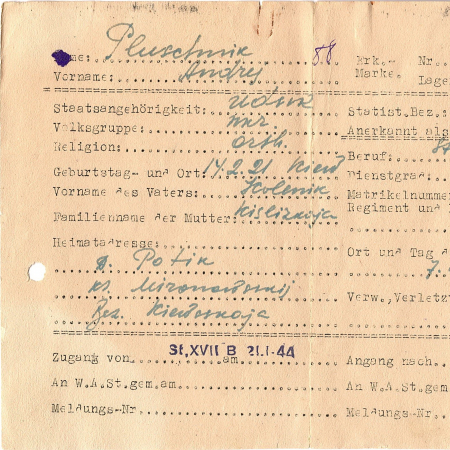 Name: Pluschnik 88 Erk.- Nr.
Vorname: Andrej Marke. Lage
Staatsangehörigkeit: Statist.Bez.:
Volksgruppe: ukr Anerkannt als
Religion: orth.
Beruf:
Geburtstag- und Ort: 14.2.21 Kiew Dienstgrad:
Vorname des Vaters: Matrikelnummer
Regiment und
Familienname der Mutter: Kislizkaja
Heimatadresse:
Ort und Tag d
d. Potik 7.
kr. Mironowskij
Verw.,Verletz
Bez. Kiewskaja
St.XVII B 21.1.44
Zugang von am Angang nach
An W.A.St.gem.am. An W.A.St.gem
Meldungs-Nr Meldungs-Nr.